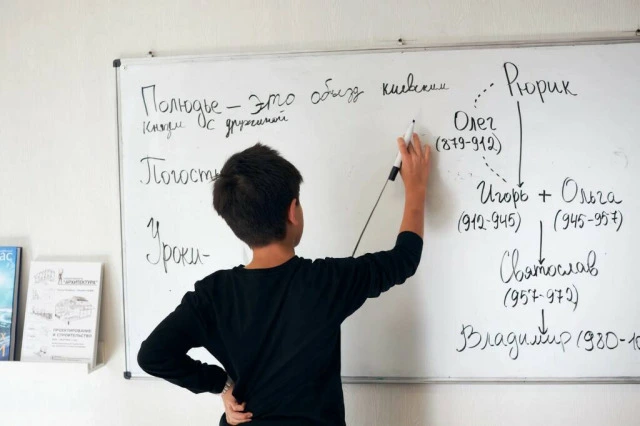 Полюдье – это объезд киевским
князем с дружиной
Погосты
Уроки-
Рюрик
Олег
(879-912)
Игорь + Ольга
(912-945) (945-957)
Святослав
(957-972)
Владимир (980-10
АС
"АРХИТЕКТУРА"
ПРОЕКТИРОВАНИЕ
И СТРОИТЕЛЬСТВО